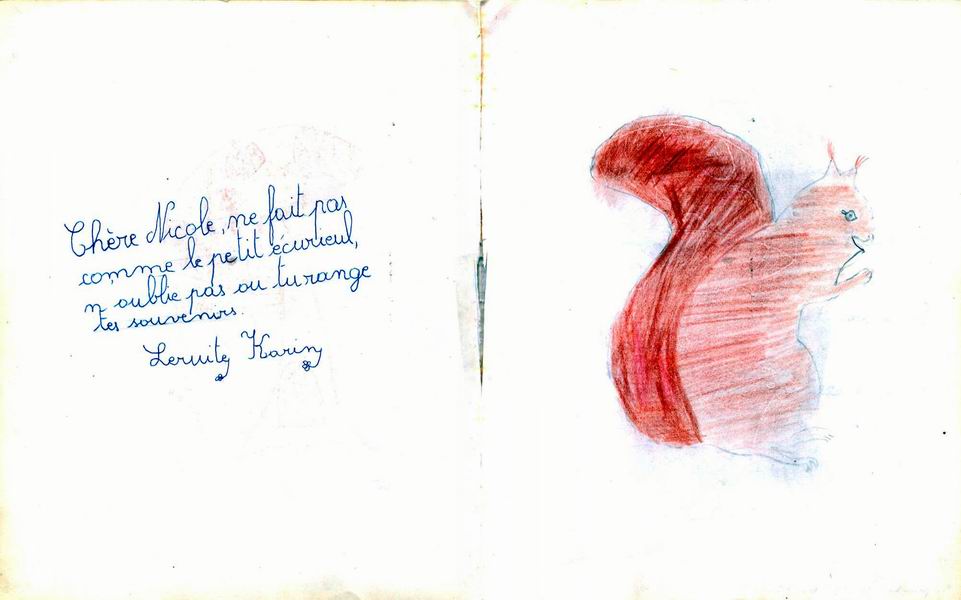 Chère Nicole, ne fait pas
comme le petit écurieul,
n oublie pas ou tu range
tes souvenirs.
Karin